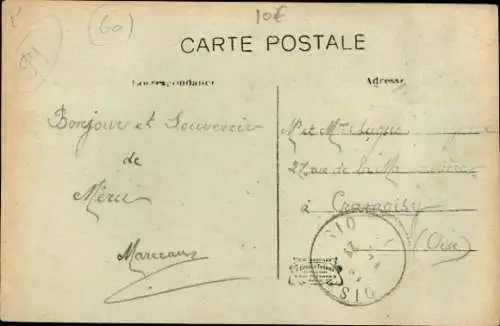 (60)
10€
CARTE POSTALE
Correspondance
Adresse
Bonjour et Souvenir
de
Méru
Marecaux
M et Mme
27, rue de la
à Cramoisy
(Oise)
OIS